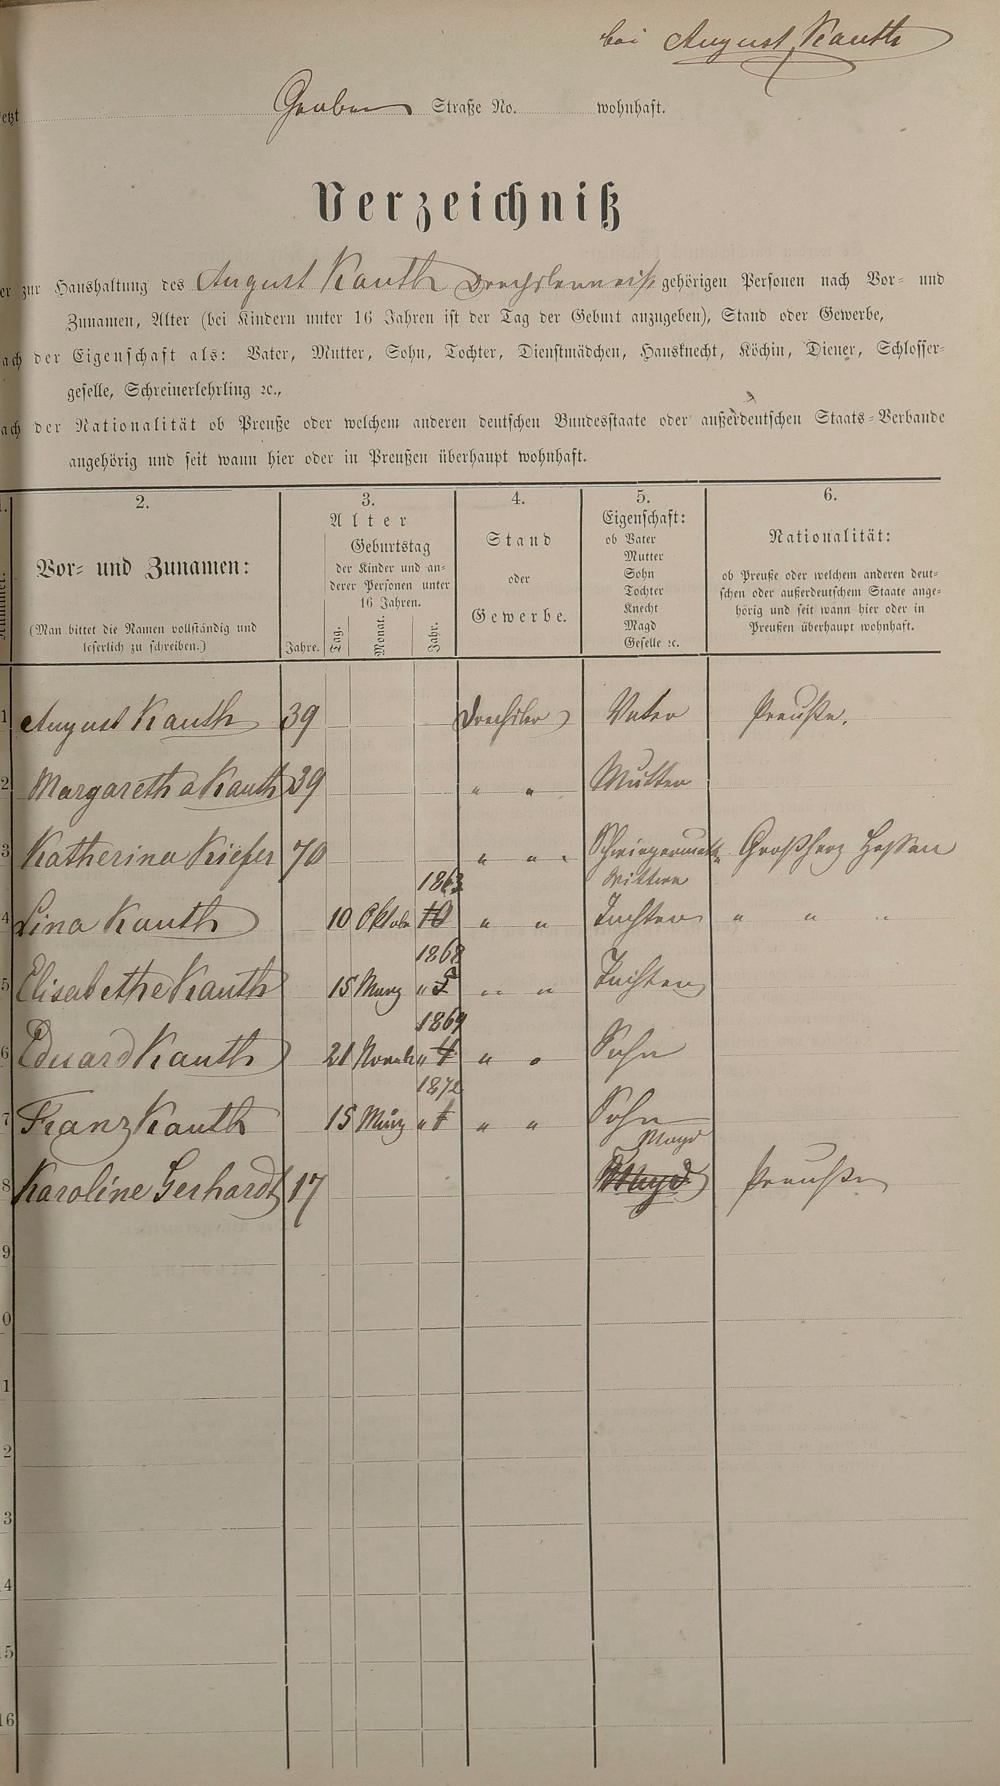 bei August Kauth
etzt Graben Straße No. wohnhaft.
Verzeichniß
er zur Haushaltung des August Kauth Drechslermeist gehörigen Personen nach Vor- und
Zunamen, Alter (bei Kindern unter 16 Jahren ist der Tag der Geburt anzugeben), Stand oder Gewerbe,
ach der Eigenschaft als: Vater, Mutter, Sohn, Tochter, Dienstmädchen, Hausknecht, Köchin, Diener, Schlosser-
geselle, Schreinerlehrling ꝛc.,
ach der Nationalität ob Preuße oder welchem anderen deutschen Bundesstaate oder außerdeutschen Staats-Verbande
angehörig und seit wann hier oder in Preußen überhaupt wohnhaft.
1. 2. 3. 4. 5. 6.
Nummer.
Vor- und Zunamen:
(Man bittet die Namen vollständig und
leserlich zu schreiben.)
Alter
Jahre.
Geburtstag
der Kinder und an-
derer Personen unter
16 Jahren.
Tag. Monat. Jahr.
Stand
oder
Gewerbe.
Eigenschaft:
ob Vater
Mutter
Sohn
Tochter
Knecht
Magd
Geselle ꝛc.
Nationalität:
ob Preuße oder welchem anderen deut-
schen oder außerdeutschem Staate ange-
hörig und seit wann hier oder in
Preußen überhaupt wohnhaft.
1 August Kauth 39 Drechsler Vater Preuße.
2 Margaretha Kauth 39 " " Mutter
3 Katherina Kiefer 70 " " " Schwiegermutt Großherz Hessen
Wittwe
1863
4 Lina Kauth 10 Oktobr 10 " " Tochter " " "
1868
5 Elisabethe Kauth 15 März " 5 " " Tochter
1869
6 Eduard Kauth 21 Novemb " 4 " " Sohn
1872
7 Franz Kauth 15 März " 1 " " Sohn
Magd
8 Karoline Gerhardt 17 Magd Preuße
9
0
1
2
3
4
5
16